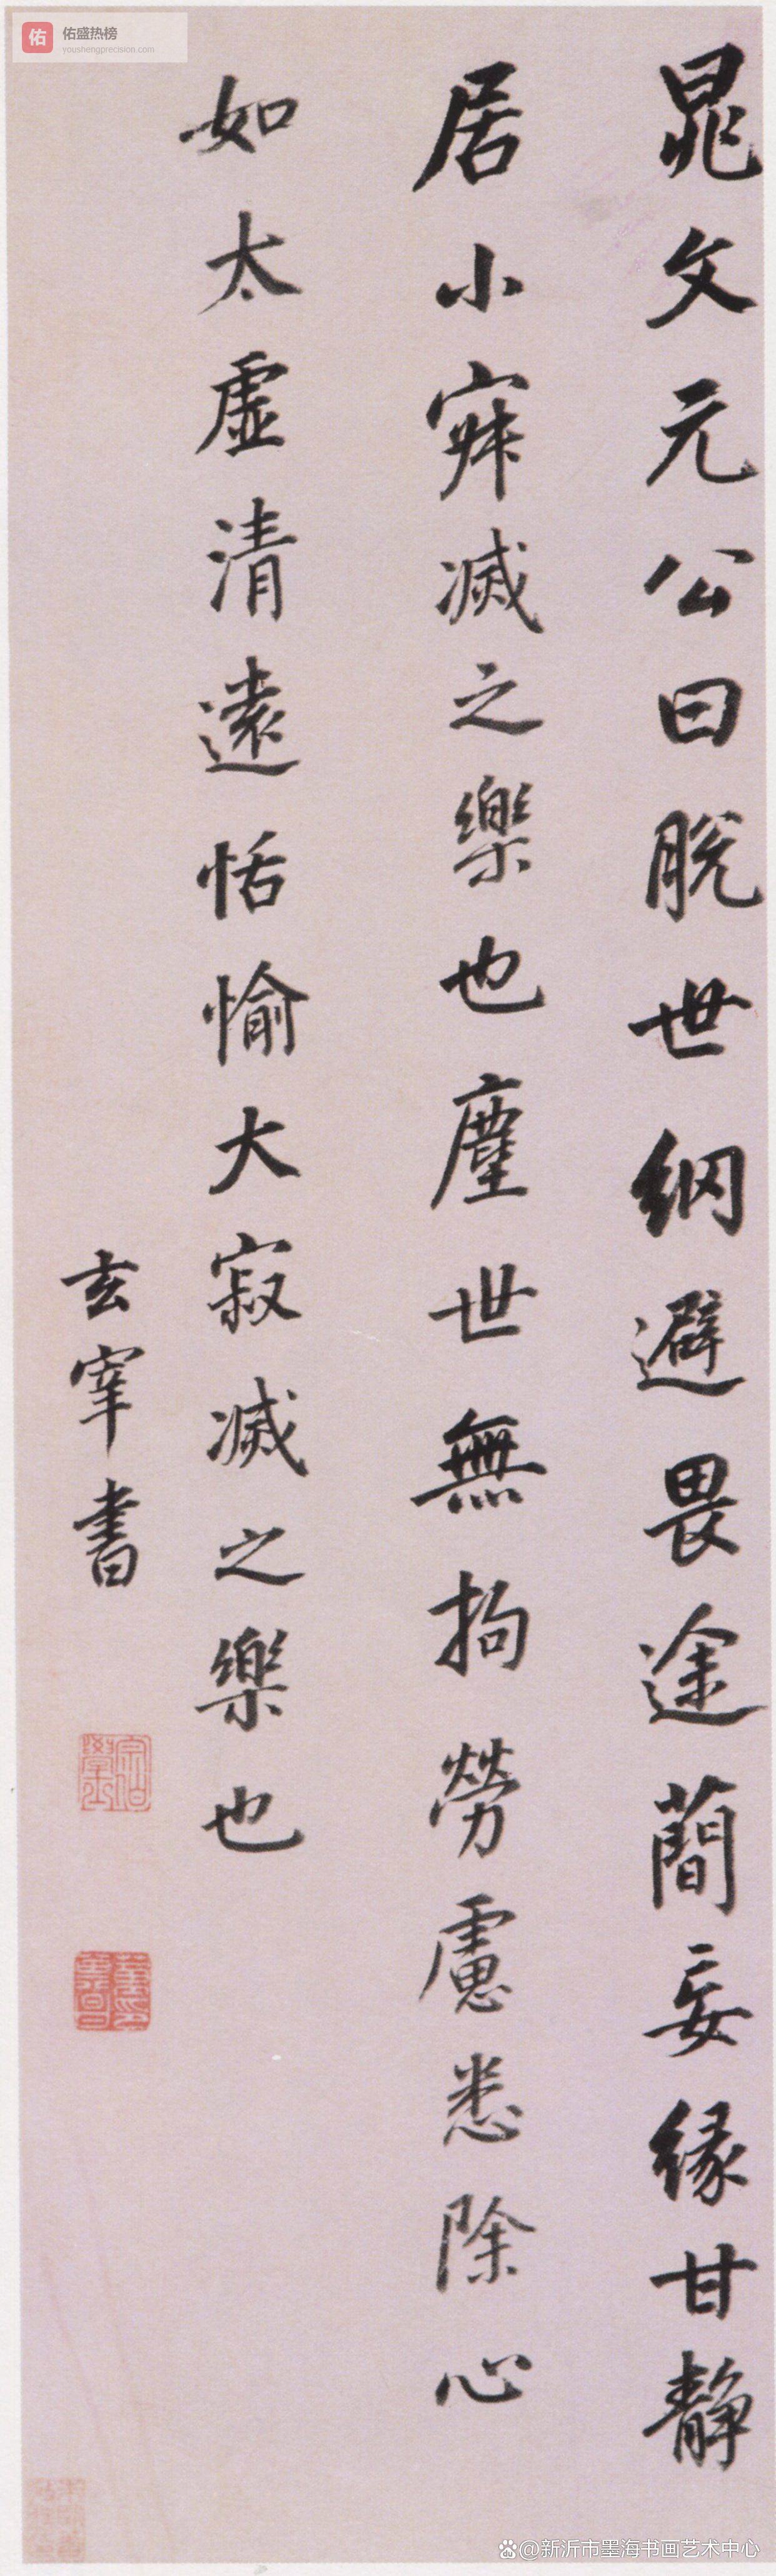 佑 佑盛热榜
youshengprecision.com
晁文元公曰脫世網避畏途簡妄緣甘靜
居小寂滅之樂也塵世無拘勞慮悉除心
如太虛清遠恬愉大寂滅之樂也
玄宰書
宗伯學士
董其昌印
@新沂市墨海书画艺术中心